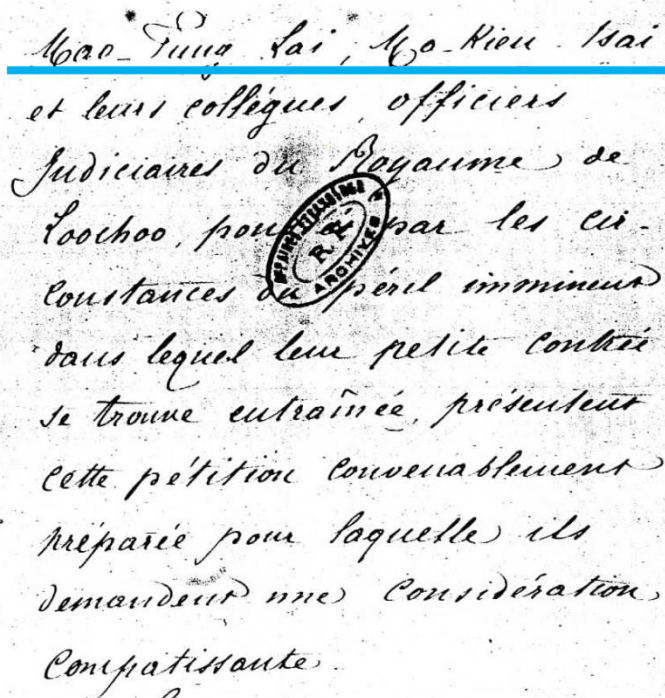 Mao-Fung Lai, Mo-Kien Tsai
et leurs collégues, officiers
Judiciaires du Royaume de
Loochoo, poussés par les cir-
constances du péril imminent
dans lequel leur petite contrée
se trouve entraînée, présentent
cette pétition convenablement
préparée pour laquelle ils
demandent une considération
compatissante.
ARCHIVES